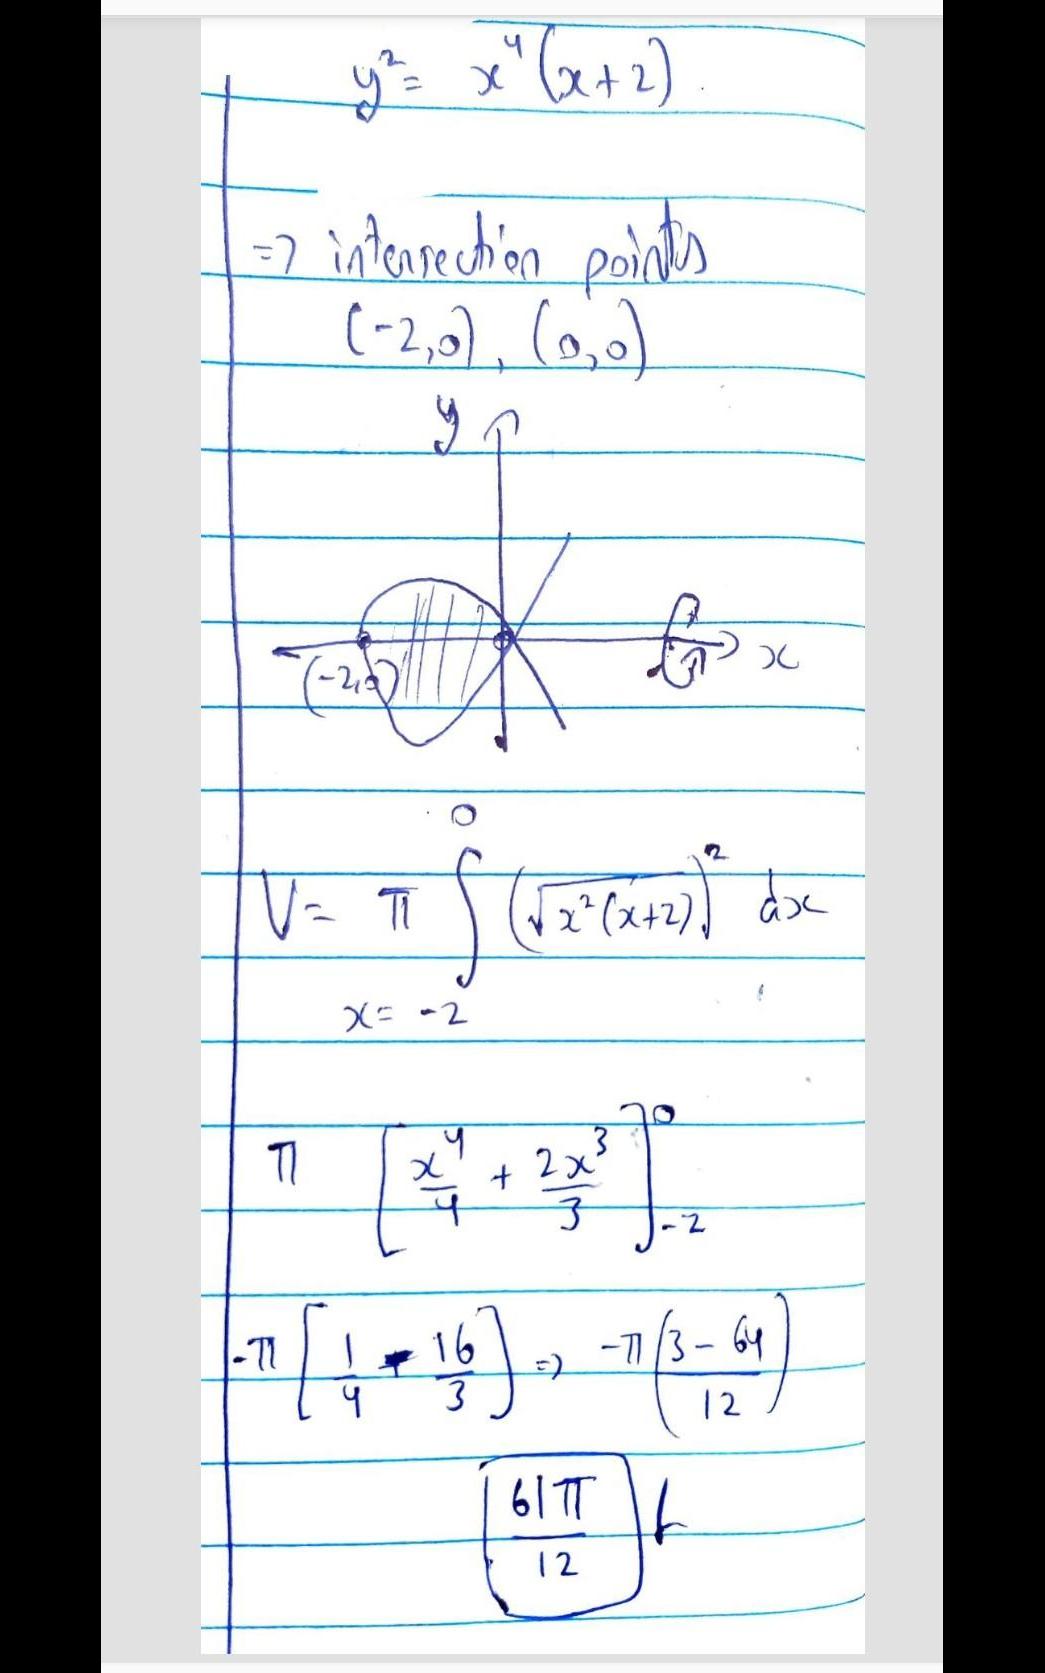 y² = x⁴(x+2)
=> intersection points
(-2,0), (0,0)
y
x
(-2,0)
0
V = π ∫ (√x²(x+2))² dx
x = -2
π [x⁴/4 + 2x³/3]⁰₋₂
-π [1/4 - 16/3] => -π (3 - 64/12)
61π/12